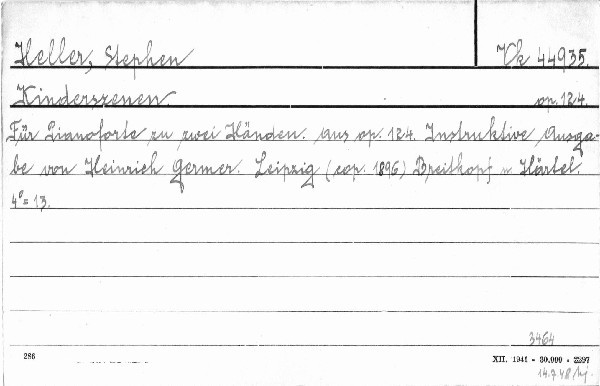 Heller, Stephen Vk 44935.
Kinderszenen. op. 124.
Für Pianoforte zu zwei Händen. Aus op. 124. Instruktive Ausga-
be von Heinrich Germer. Leipzig (cop. 1896) Breitkopf u. Härtel.
4° = 13.
3464
286 XII. 1941 - 30.000 - 2297
14.7.48